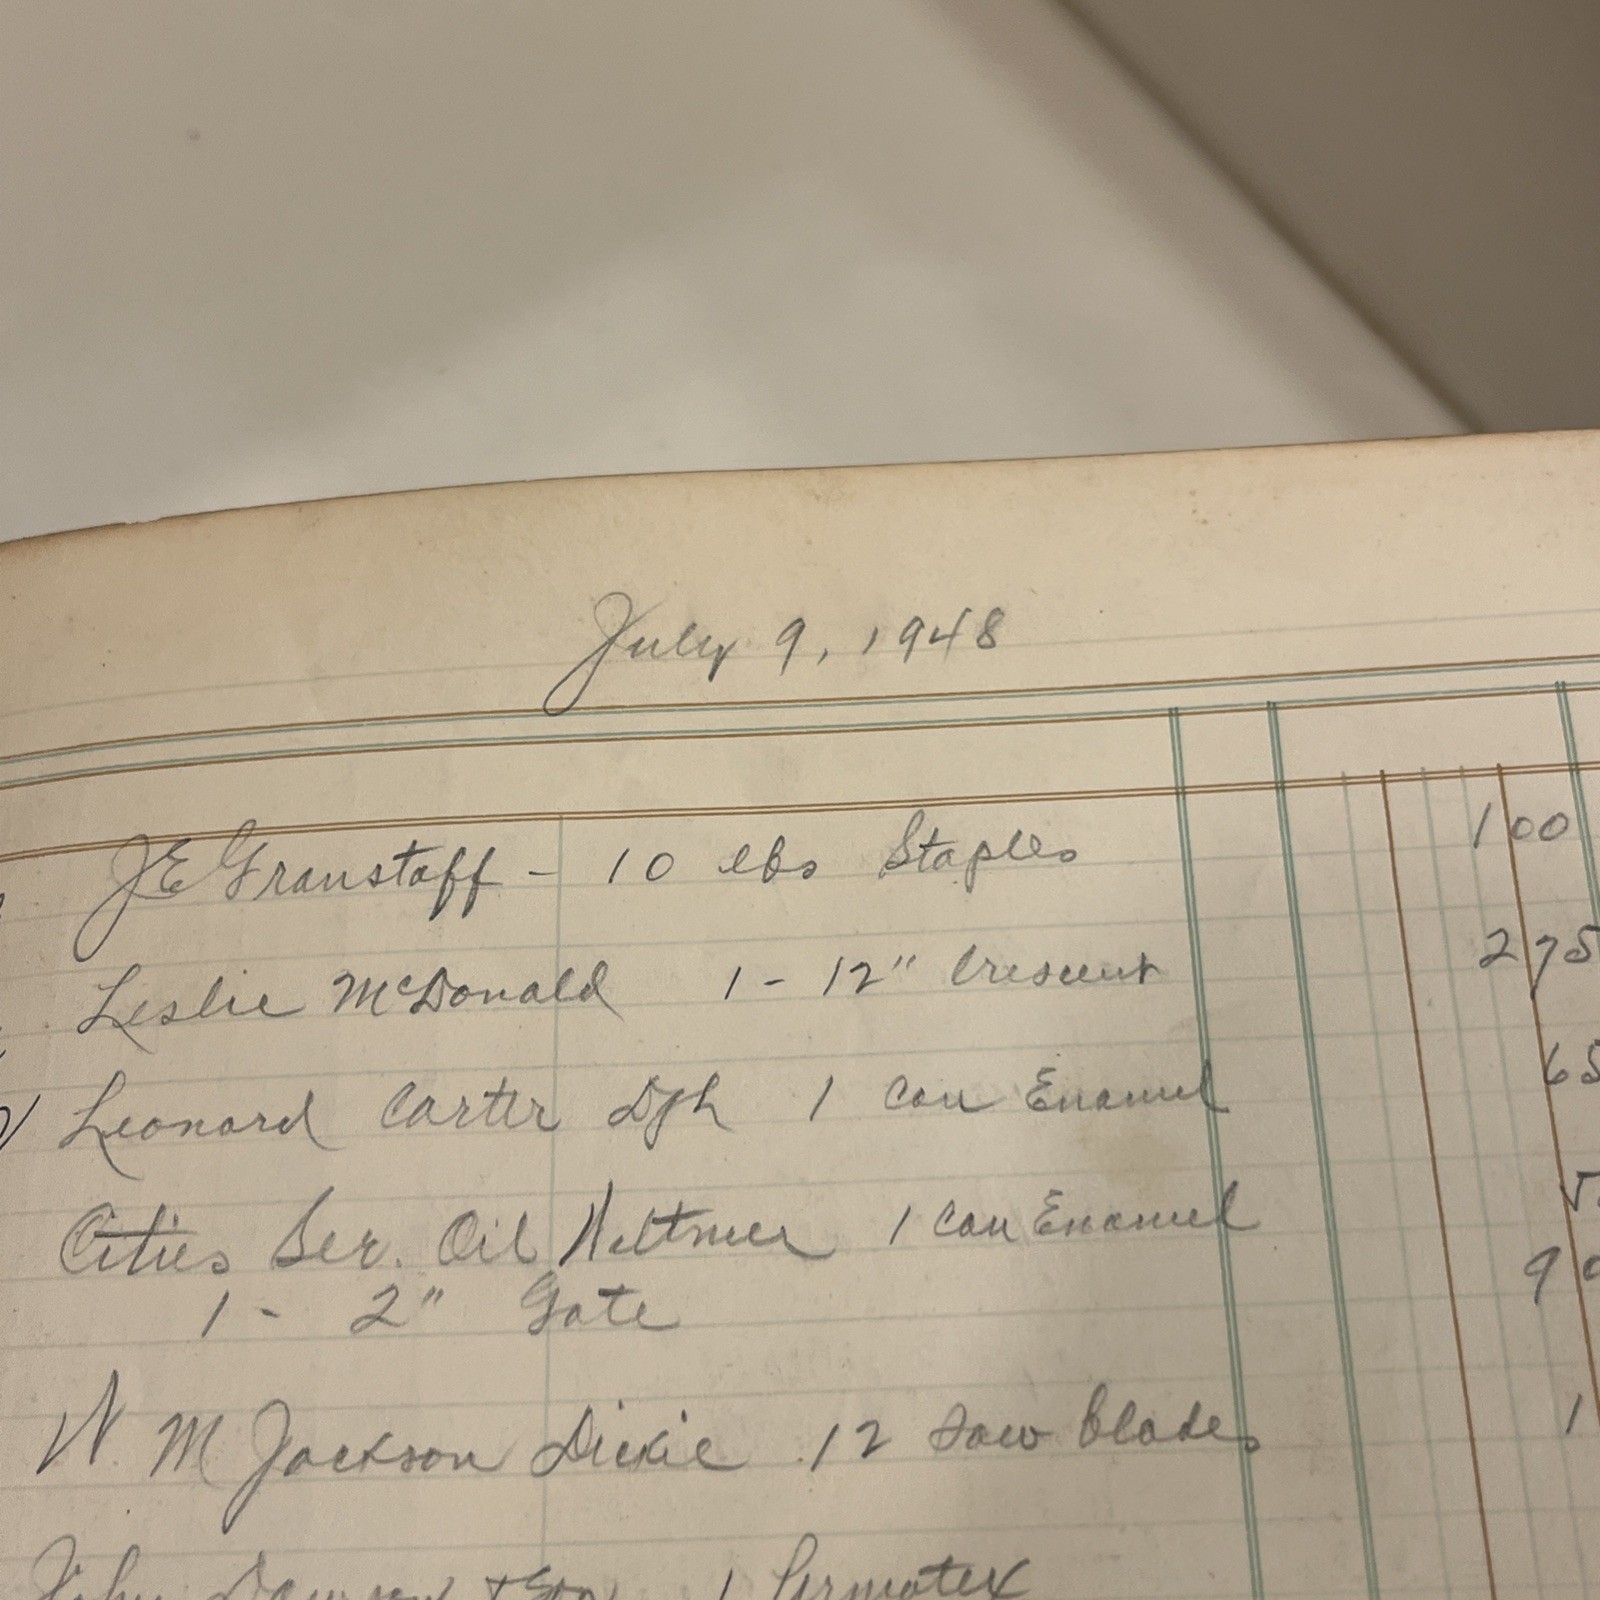 July 9, 1948
JE Granstaff - 10 lbs Staples 1 00
Leslie McDonald 1 - 12" Crescent 2 75
Leonard Carter Dfh 1 Can Enamel 65
Cities Ser. Oil Weltmer 1 Can Enamel
1 - 2" Gate 9
W. M Jackson Dickie 12 Saw Blades 1
John Dawson + Son 1 Permatex